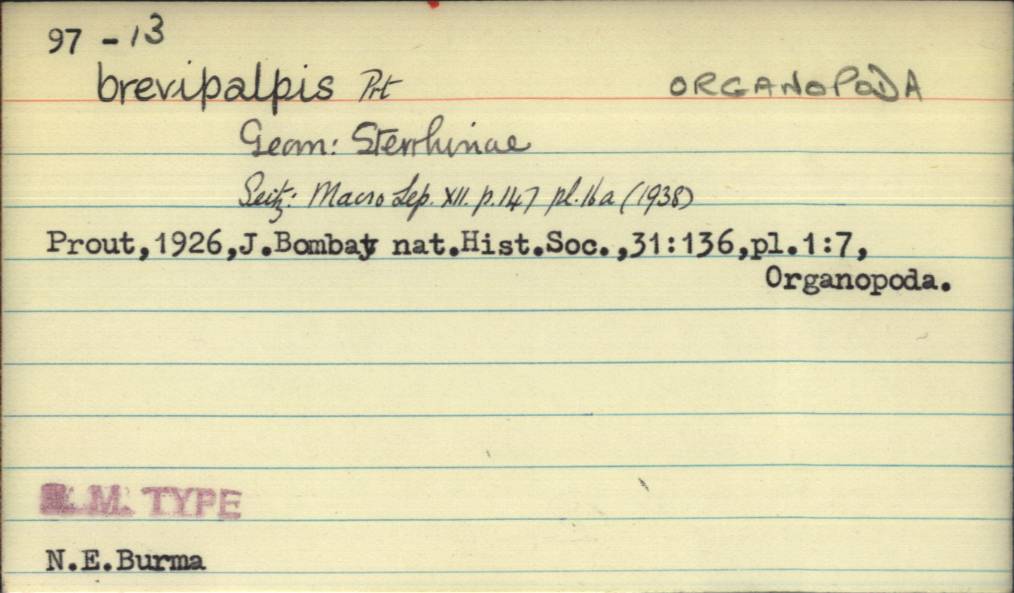 97 -13
brevipalpis Prt ORGANOPODA
Geom: Sterrhinae
Seitz: Macro Lep. XII. p.147 pl.16a (1938)
Prout,1926,J.Bombay nat.Hist.Soc.,31:136,pl.1:7,
Organopoda.
B.M. TYPE
N.E.Burma